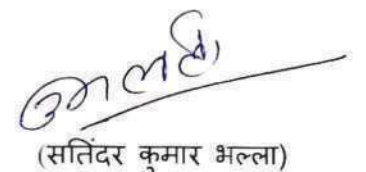 (सतिंदर कुमार भल्ला)